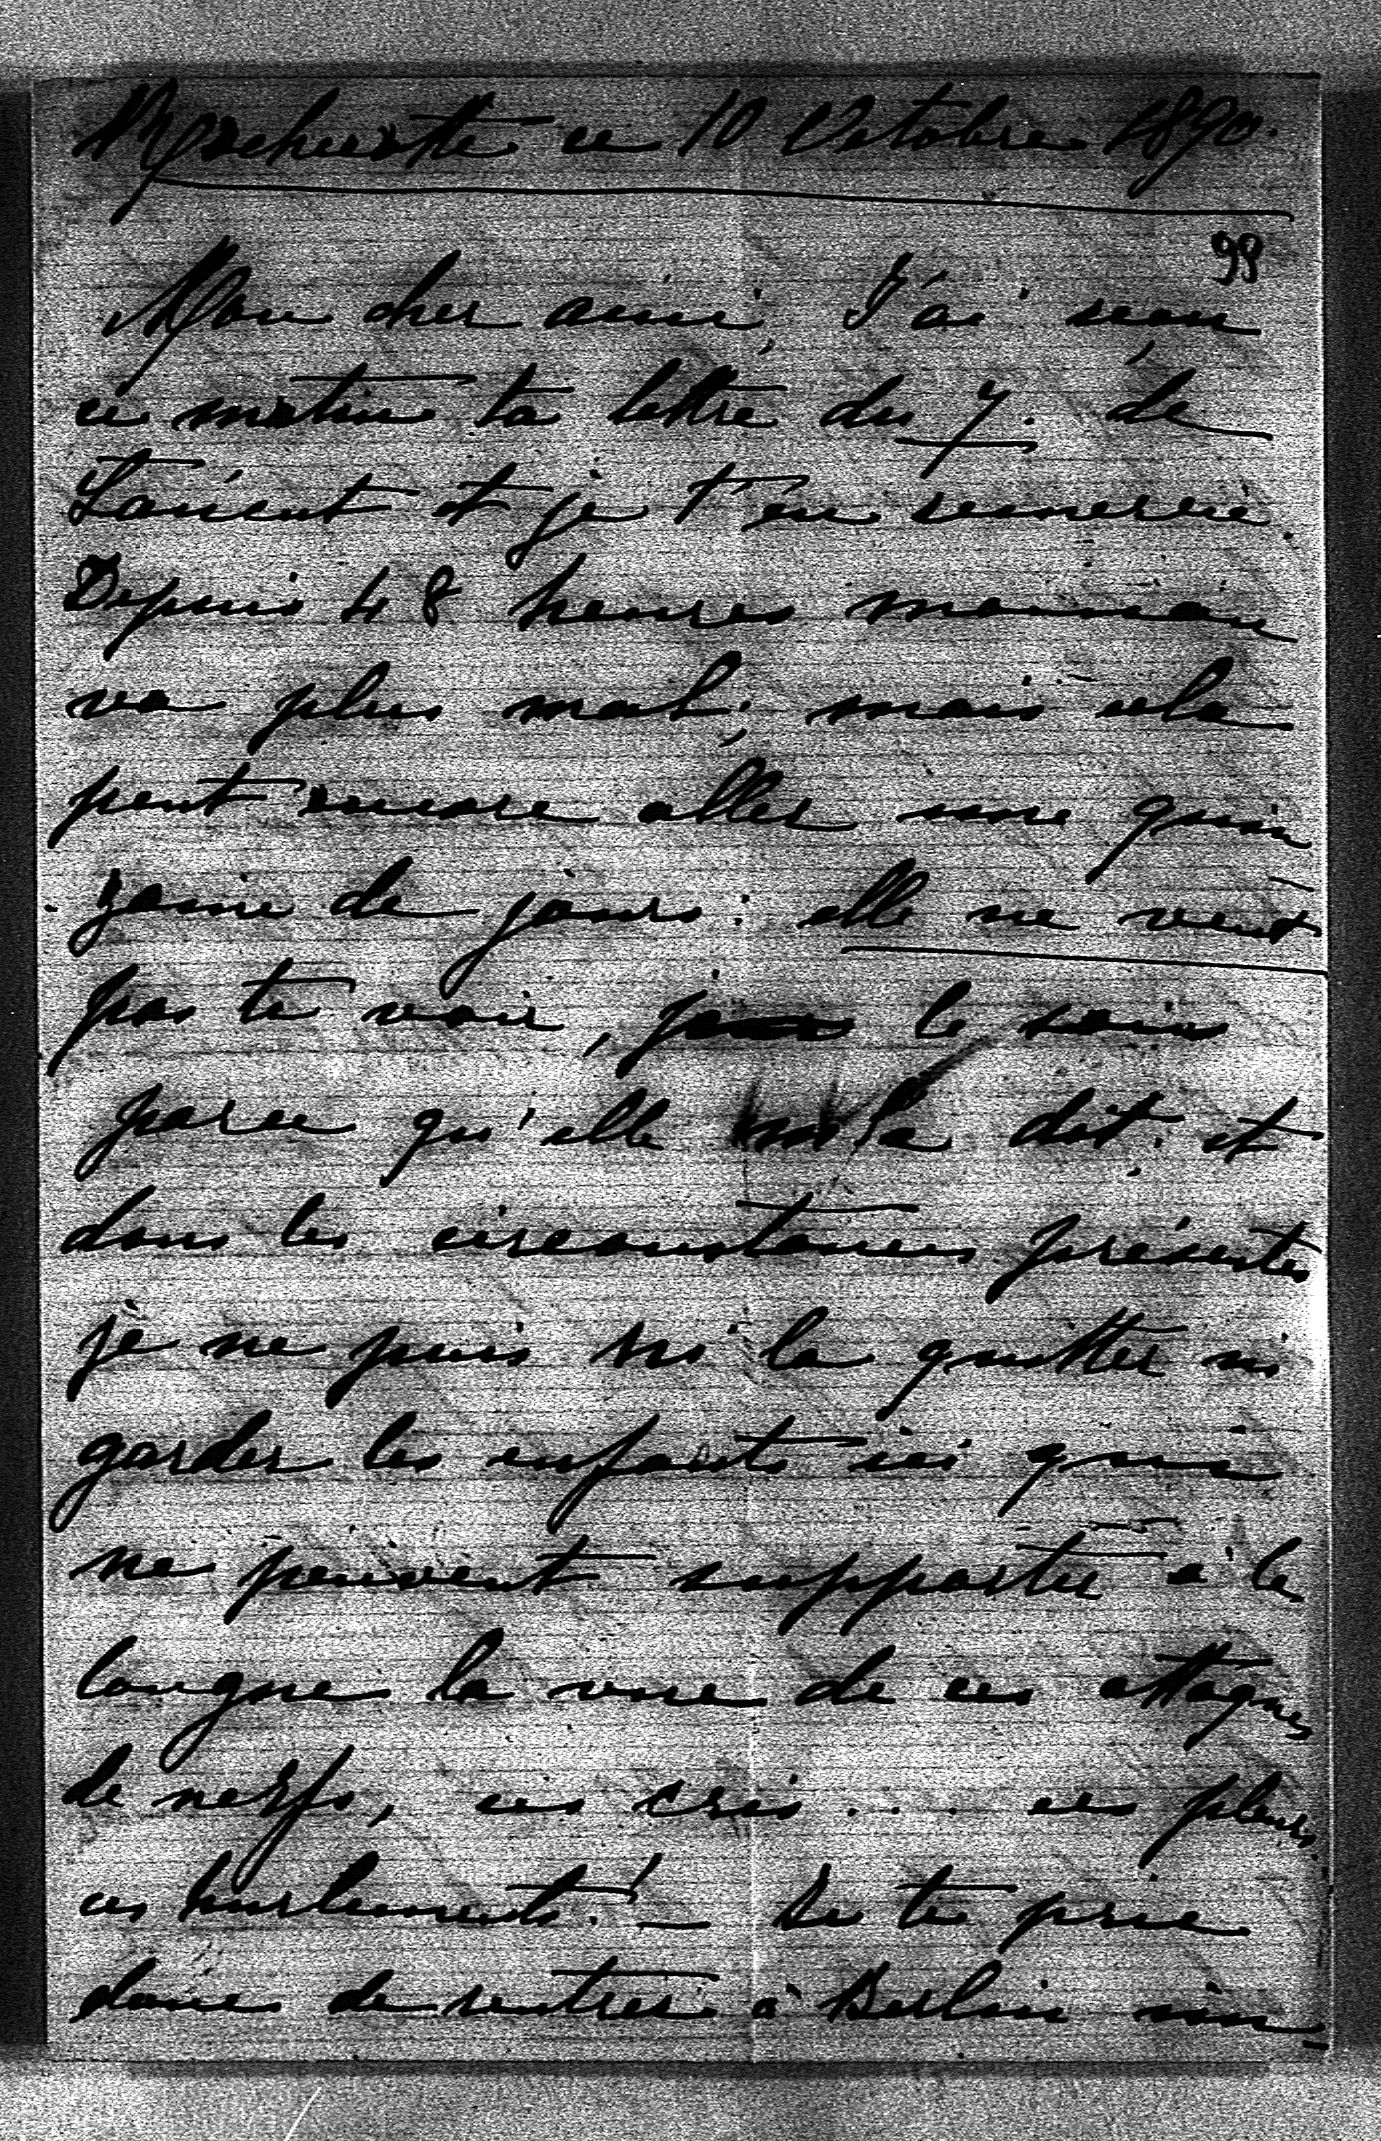 Marchevotte ce 10 Octobre 1890.
98
Mon cher ami, J'ai reçu
ce matin ta lettre du 7. de
Lorient et je t'en remercie.
Depuis 48 heures maman
va plus mal; mais cela
peut encore aller une quin
zaine de jours: elle ne veut
pas te voir, je le sais
parce qu'elle m'a dit; et
dans les circonstances présentes
je ne puis ni la quitter ni
garder les enfants ici qui
ne peuvent supporter à la
longue la vue de ces attaques
de nerfs, ces cris... ces pleurs..
ces hurlements! — Je te prie
donc de rentrer à Berlin im=